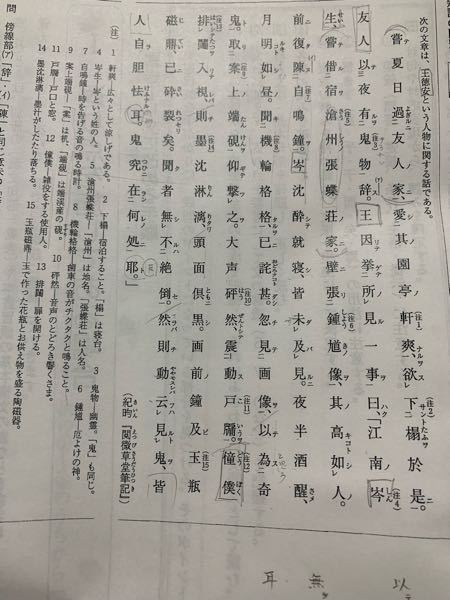 次の文章は、王徳安という人物に関する話である。
嘗夏日過友人家、愛其園亭軒爽、欲下榻於是。
友人以夜有鬼物辞。王因挙所見一事曰、「江南岑
生、嘗借宿滄州張蝶荘家。壁張鍾馗像、其高如人。
前復陳自鳴鐘。岑沈酔就寝、皆未及見。夜半酒醒、
月明如昼。聞機輪格格、已詫甚、忽見画像、以為奇
鬼。取案上端硯仰撃之。大声砰然、震動戸牖。僮僕
排闥入視、則墨沈淋漓、頭面倶黒。画前鐘及玉瓶
磁鼎、已砕裂矣。聞者無不絶倒。然則動云見鬼、皆
人自胆怯耳。鬼究在何処耶。」
（紀昀『閲微草堂筆記』）
（注） 1 軒爽―広々として涼しげである。 2 下榻―宿泊すること。「榻」は寝台。 3 鬼物―幽霊。「鬼」も同じ。
4 岑生―岑という姓の人。 5 滄州張蝶荘―「滄州」は地名。「張蝶荘」は人名。 6 鍾馗―厄よけの神。
7 自鳴鐘―時を告げる音の鳴る時計。 8 機輪格格―歯車の音がチクタクと鳴ること。
9 案上端硯―「案」は机、「端硯」は端渓産の硯。 10 砰然―音声のとどろき響くさま。
11 戸牖―戸口と窓。 12 僮僕―雑役をする使用人。 13 排闥―扉を開ける。
14 墨沈淋漓―墨汁がしたたり落ちる。 15 玉瓶磁鼎―玉で作った花瓶とお供え物を盛る陶磁器。
以テ
無
耳